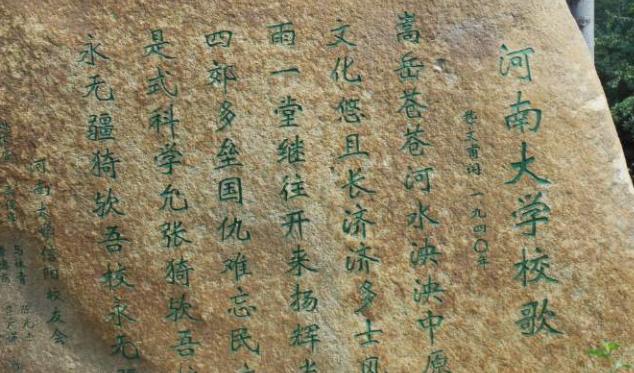 河南大学校歌
一九四〇年
嵩岳苍苍河水泱泱中原
文化悠且长济济多士风
雨一堂继往开来扬辉
四郊多垒国仇难忘民
是式科学允张猗欤吾
永无疆猗欤吾校永无
河南大学信阳校友会